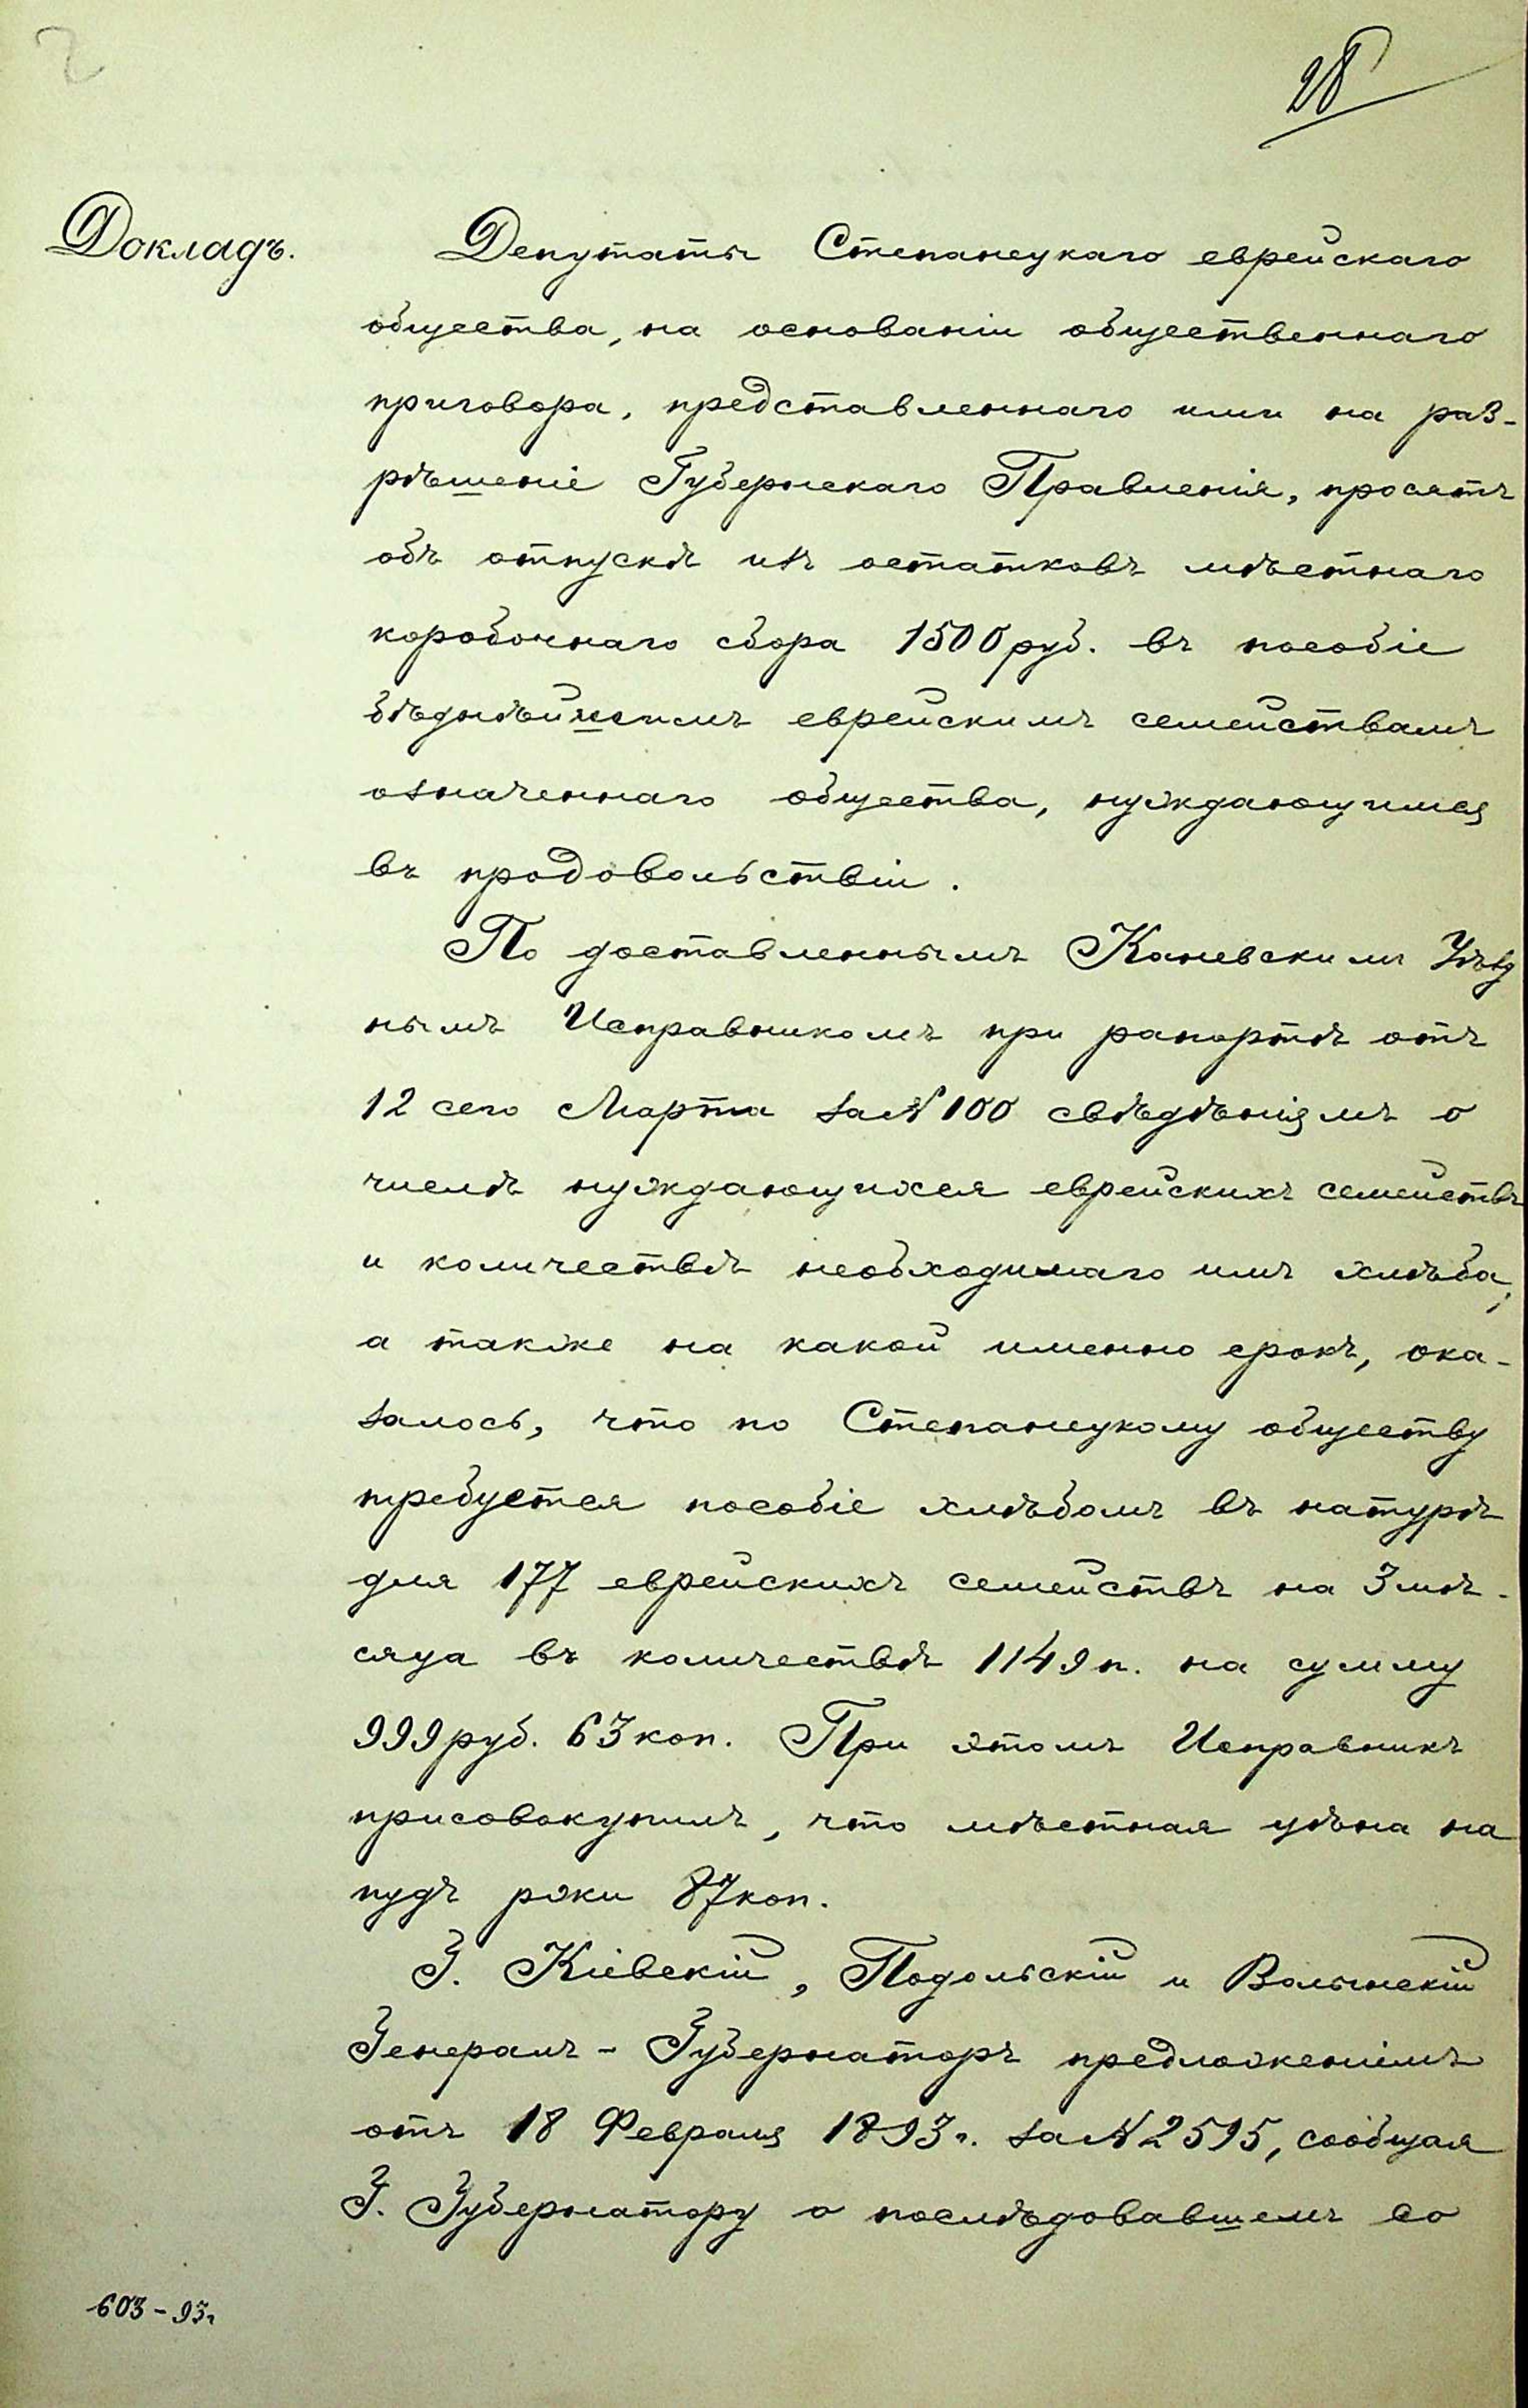 2
28
Докладъ.
Депутаты Степанецкаго еврейскаго
общества, на основаніи общественнаго
приговора, представленнаго ими на раз-
рѣшеніе Губернскаго Правленія, просятъ
объ отпускѣ изъ остатковъ мѣстнаго
коробочнаго сбора 1500 руб. въ пособіе
бѣднѣйшимъ еврейскимъ семействамъ
означеннаго общества, нуждающимся
въ продовольствіи.
По доставленнымъ Каневскимъ Уѣзд
нымъ Исправникомъ при рапортѣ отъ
12 сего Марта за № 100 свѣдѣніямъ о
числѣ нуждающихся еврейскихъ семействъ
и количествѣ необходимаго имъ хлѣба,
а также на какой именно срокъ, ока-
залось, что по Степанецкому обществу
требуется пособіе хлѣбомъ въ натурѣ
для 177 еврейскихъ семействъ на 3 мѣ-
сяца въ количествѣ 1149 п. на сумму
999 руб. 63 коп. При этомъ Исправникъ
присовокупилъ, что мѣстная цѣна на
пудъ ржи 87 коп.
Г. Кіевскій, Подольскій и Волынскій
Генералъ-Губернаторъ предложеніемъ
отъ 18 Февраля 1893 г. за № 2595, сообщая
Г. Губернатору о послѣдовавшемъ со
603-93г